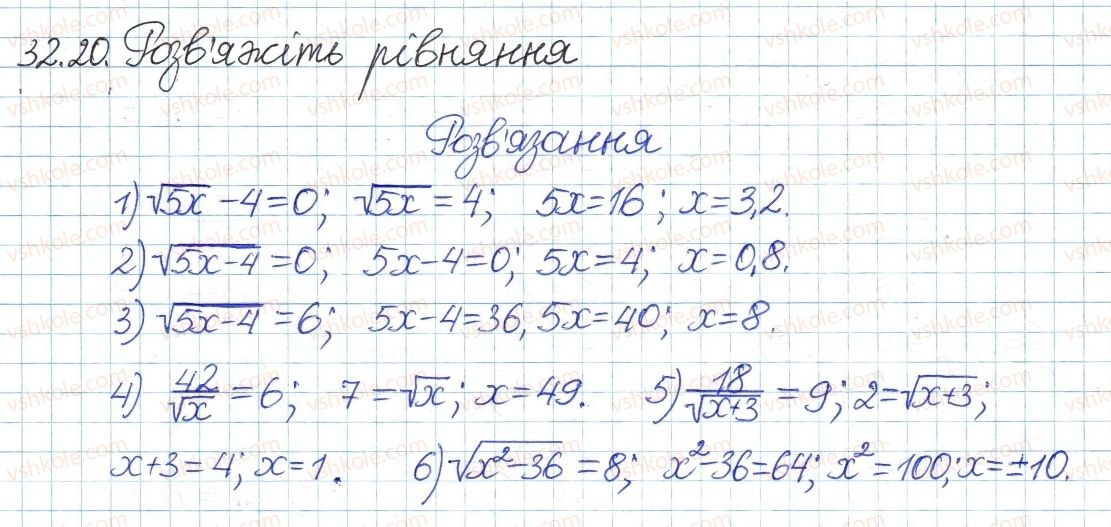 32.20. Розв'яжіть рівняння
Розв'язання
1) √5x - 4 = 0; √5x = 4; 5x = 16; x = 3,2.
2) √5x-4 = 0; 5x - 4 = 0; 5x = 4; x = 0,8.
3) √5x-4 = 6; 5x - 4 = 36, 5x = 40; x = 8.
4) 42/√x = 6; 7 = √x; x = 49. 5) 18/√x+3 = 9; 2 = √x+3;
x + 3 = 4; x = 1. 6) √x²-36 = 8; x² - 36 = 64; x² = 100; x = ±10.